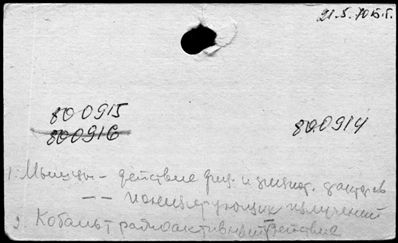 21.5.70 Б.Г.
800915
800916 800914
1. Мышцы - действие физ. и химич. факторов
-- ионизирующих излучений
2. Кобальт радиоактивный действие